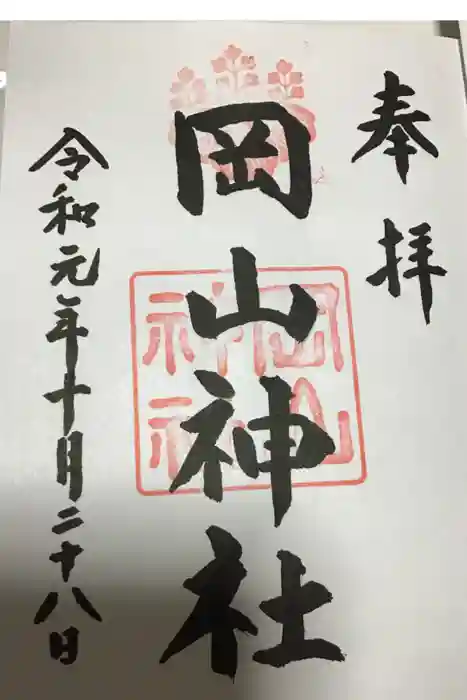 奉拝
岡山神社
岡山神社
令和元年十月二十八日